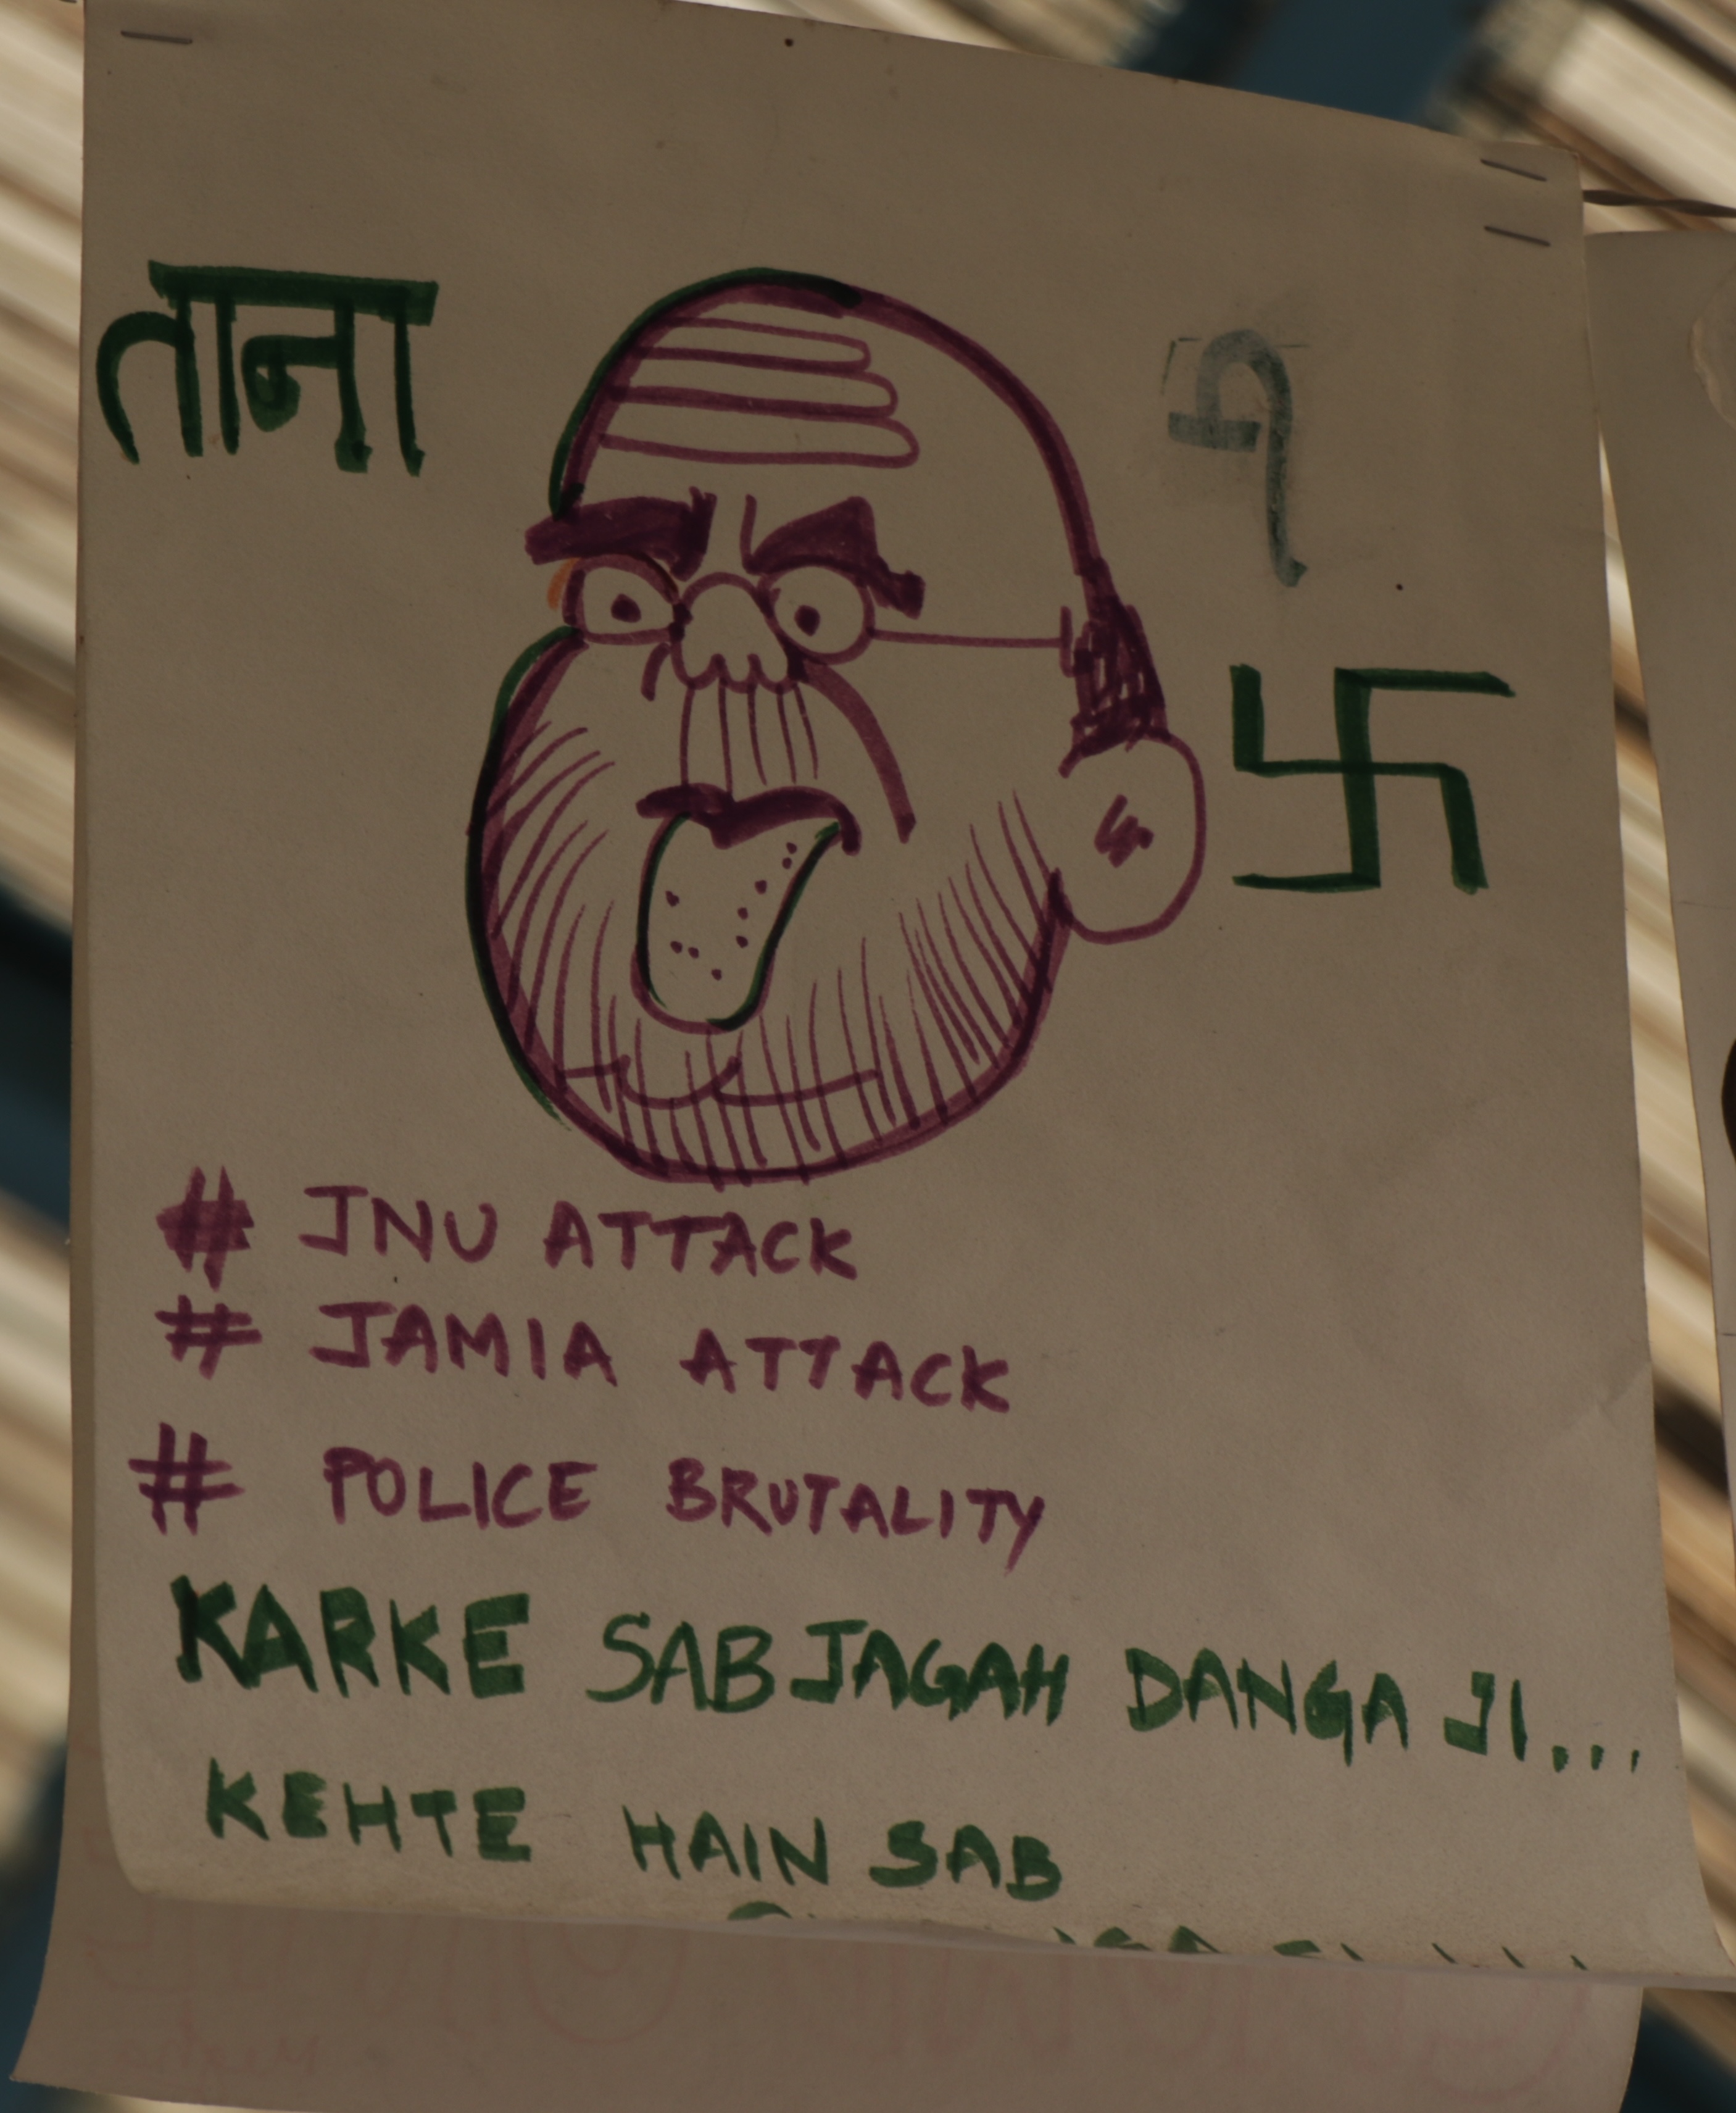 ताना
# JNU ATTACK
# JAMIA ATTACK
# POLICE BRUTALITY
KARKE SAB JAGAH DANGA JI...
KEHTE HAIN SAB